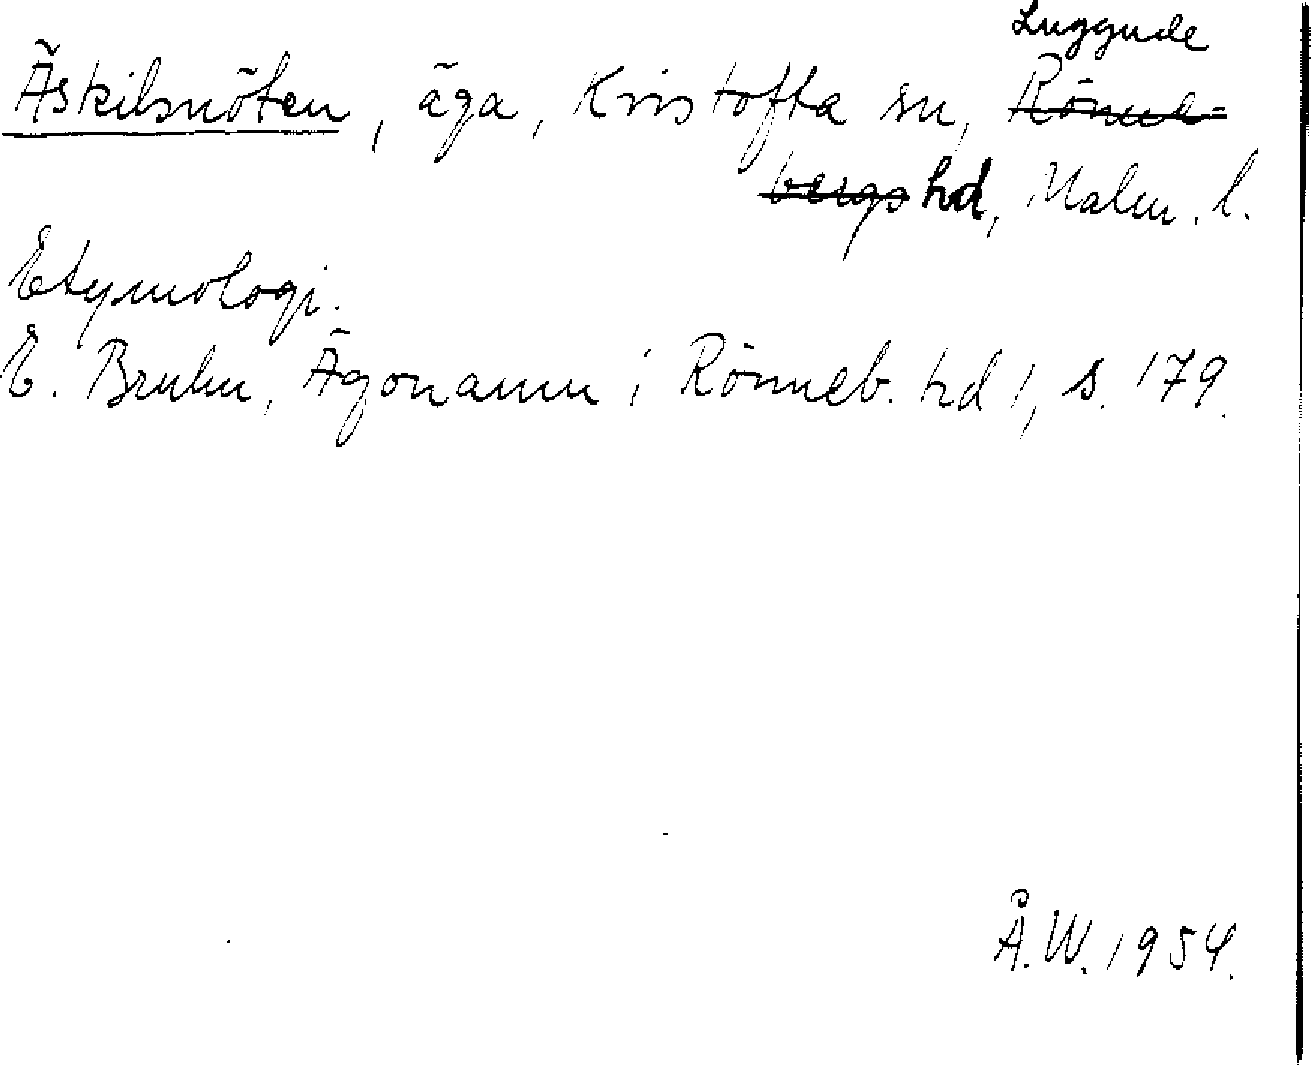 Luggude
Äskilsnöten, äga, Kristoffa sn, Rönne-
bergs hd, Malm. l.
Etymologi.
E. Bruhn, Ägonamn i Rönneb. hd 1, s. 179.
Å.W. 1954.